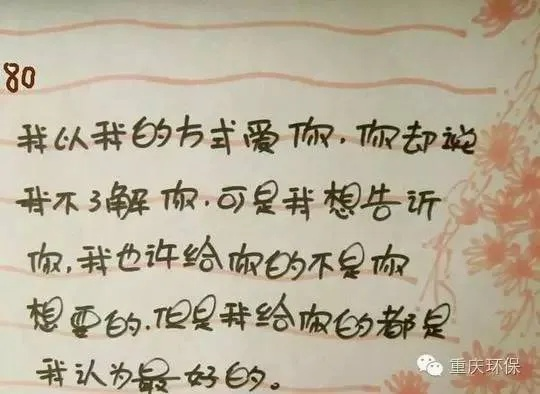 80
我以我的方式爱你，你却说
我不了解你，可是我想告诉
你，我也许给你的不是你
想要的，但是我给你的都是
我认为最好的。
重庆环保